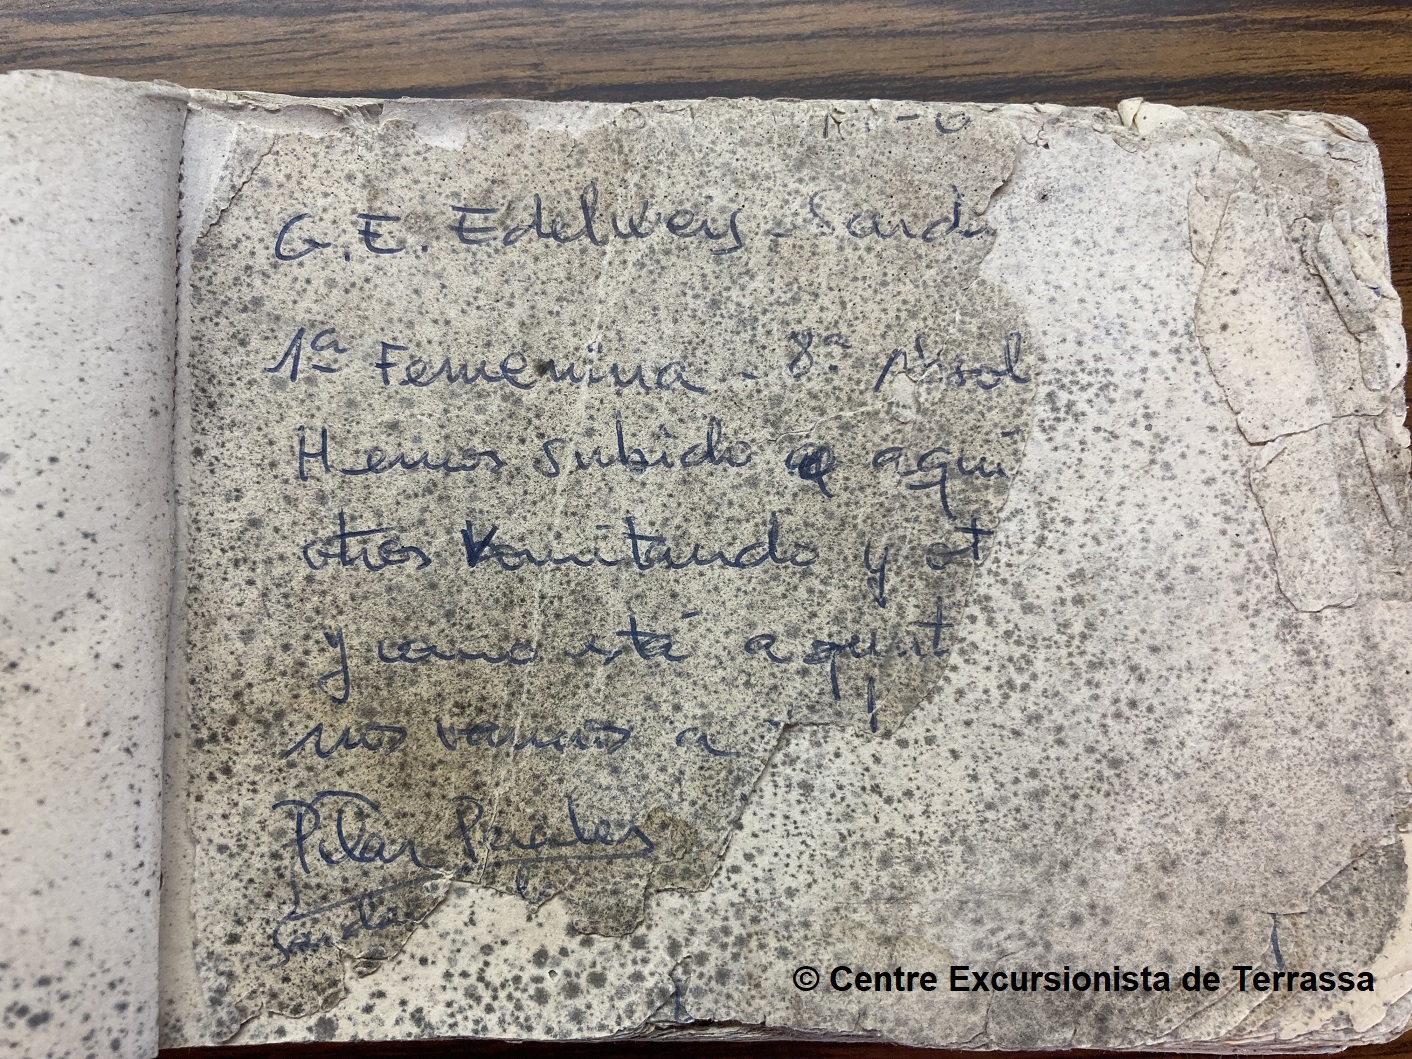 G.E. Edelweis - Sardi
1ª Femenina - 8ª Absol
Hemos subido a aquí
otros vomitando y ot
y como está aquí
nos vamos a
Pilar
© Centre Excursionista de Terrassa